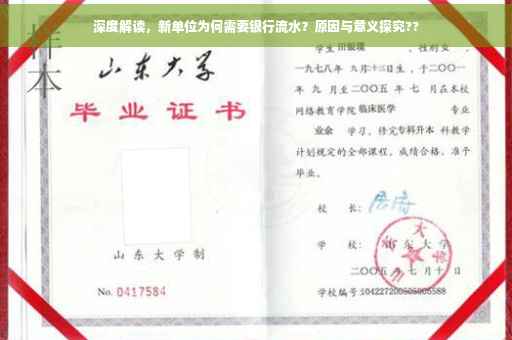 深度解读，新单位为何需要银行流水？原因与意义探究??
样本
山东大学
毕业证书
山东大学制
No. 0417584
学生 田银瑞 ，性别 女 ，
一九七八年 九月十三日生，于二〇〇一
年 九 月至二〇〇五 年 七 月在本校
网络教育学院 临床医学 专业
业余 学习，修完专科升本 科教学
计划规定的全部课程，成绩合格，准予
毕业。
校 长：
学 校： 山东大学
二〇〇五 年 七月 十 日
学校编号：